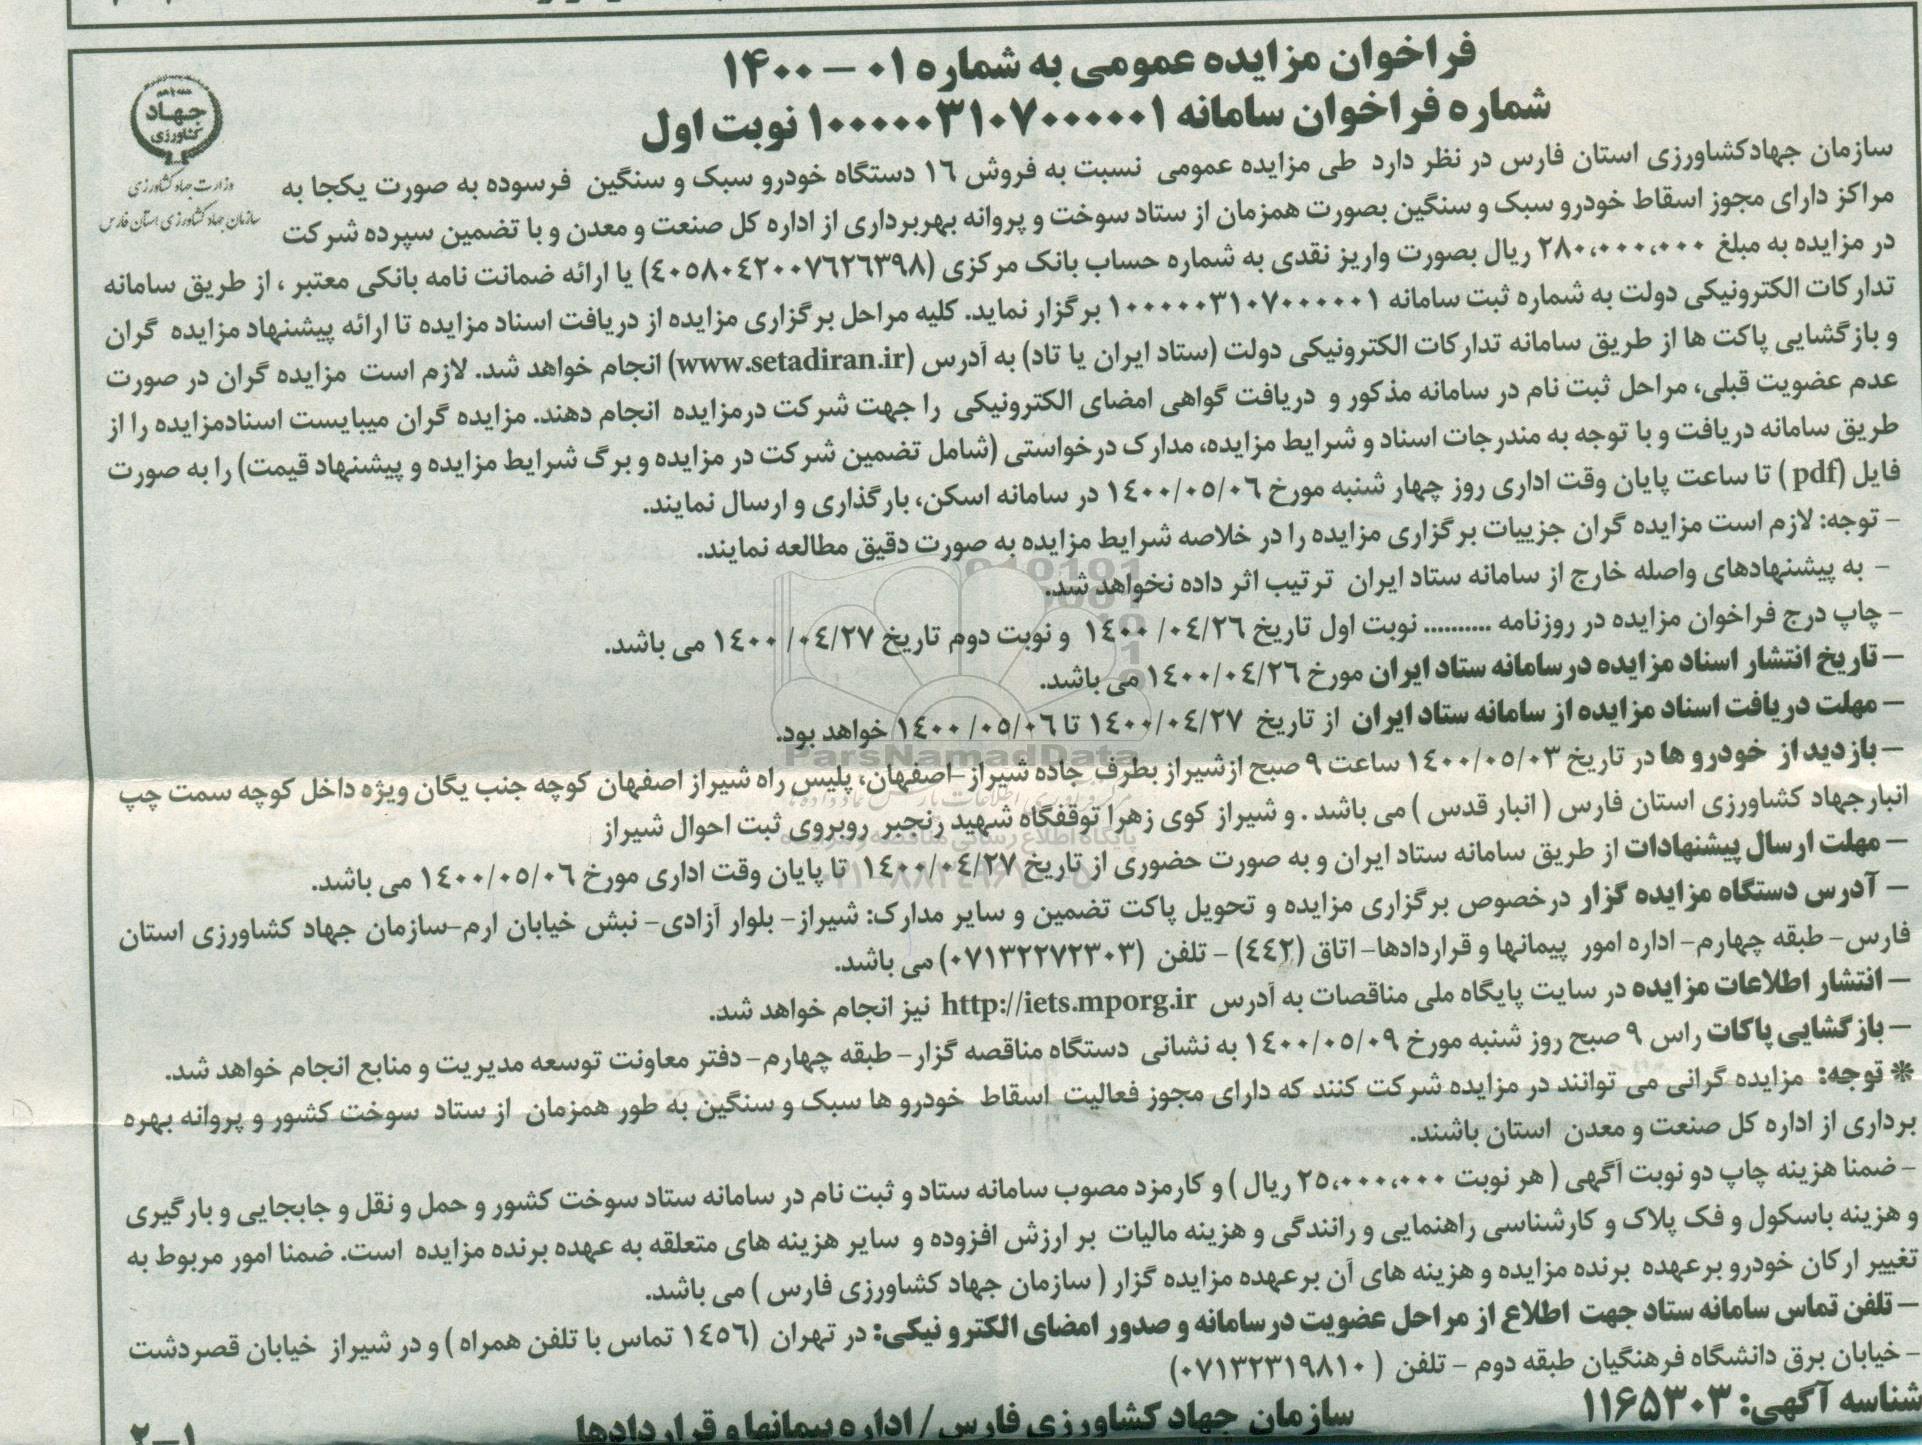 فراخوان مزایده عمومی به شماره ۰۱ – ۱۴۰۰
شماره فراخوان سامانه ۱۰۰۰۰۰۳۱۰۷۰۰۰۰۰۱ نوبت اول
جهاد
کشاورزی
وزارت جهاد کشاورزی
سازمان جهاد کشاورزی استان فارس
سازمان جهادکشاورزی استان فارس در نظر دارد طی مزایده عمومی نسبت به فروش ۱۶ دستگاه خودرو سبک و سنگین فرسوده به صورت یکجا به
مراکز دارای مجوز اسقاط خودرو سبک و سنگین بصورت همزمان از ستاد سوخت و پروانه بهربرداری از اداره کل صنعت و معدن و با تضمین سپرده شرکت
در مزایده به مبلغ ۲۸۰،۰۰۰،۰۰۰ ریال بصورت واریز نقدی به شماره حساب بانک مرکزی (۴۰۵۸۰۴۲۰۰۷۶۲۶۳۹۸) یا ارائه ضمانت نامه بانکی معتبر ، از طریق سامانه
تدارکات الکترونیکی دولت به شماره ثبت سامانه ۱۰۰۰۰۰۳۱۰۷۰۰۰۰۰۱ برگزار نماید. کلیه مراحل برگزاری مزایده از دریافت اسناد مزایده تا ارائه پیشنهاد مزایده گران
و بازگشایی پاکت ها از طریق سامانه تدارکات الکترونیکی دولت (ستاد ایران یا تاد) به آدرس (www.setadiran.ir) انجام خواهد شد. لازم است مزایده گران در صورت
عدم عضویت قبلی، مراحل ثبت نام در سامانه مذکور و دریافت گواهی امضای الکترونیکی را جهت شرکت درمزایده انجام دهند. مزایده گران میبایست اسنادمزایده را از
طریق سامانه دریافت و با توجه به مندرجات اسناد و شرایط مزایده، مدارک درخواستی (شامل تضمین شرکت در مزایده و برگ شرایط مزایده و پیشنهاد قیمت) را به صورت
فایل (pdf ) تا ساعت پایان وقت اداری روز چهار شنبه مورخ ۱۴۰۰/۰۵/۰۶ در سامانه اسکن، بارگذاری و ارسال نمایند.
– توجه: لازم است مزایده گران جزییات برگزاری مزایده را در خلاصه شرایط مزایده به صورت دقیق مطالعه نمایند.
– به پیشنهادهای واصله خارج از سامانه ستاد ایران ترتیب اثر داده نخواهد شد.
– چاپ درج فراخوان مزایده در روزنامه .......... نوبت اول تاریخ ۰۴/۲۶/ ۱۴۰۰ و نوبت دوم تاریخ ۰۴/۲۷/ ۱۴۰۰ می باشد.
– تاریخ انتشار اسناد مزایده درسامانه ستاد ایران مورخ ۱۴۰۰/۰۴/۲۶ می باشد.
– مهلت دریافت اسناد مزایده از سامانه ستاد ایران از تاریخ ۱۴۰۰/۰۴/۲۷ تا ۰۵/۰۶/ ۱۴۰۰ خواهد بود.
ParsNamadData
– بازدید از خودرو ها در تاریخ ۱۴۰۰/۰۵/۰۳ ساعت ۹ صبح ازشیراز بطرف جاده شیراز-اصفهان، پلیس راه شیراز اصفهان کوچه جنب یگان ویژه داخل کوچه سمت چپ
انبارجهاد کشاورزی استان فارس ( انبار قدس ) می باشد . و شیراز کوی زهرا توقفگاه شهید رنجبر روبروی ثبت احوال شیراز
پایگاه اطلاع رسانی مناقصه و مزایده
– مهلت ارسال پیشنهادات از طریق سامانه ستاد ایران و به صورت حضوری از تاریخ ۱۴۰۰/۰۴/۲۷ تا پایان وقت اداری مورخ ۱۴۰۰/۰۵/۰۶ می باشد.
– آدرس دستگاه مزایده گزار درخصوص برگزاری مزایده و تحویل پاکت تضمین و سایر مدارک: شیراز- بلوار آزادی- نبش خیابان ارم-سازمان جهاد کشاورزی استان
فارس- طبقه چهارم- اداره امور پیمانها و قراردادها- اتاق (۴۴۲) – تلفن (۰۷۱۳۲۲۷۲۳۰۳) می باشد.
– انتشار اطلاعات مزایده در سایت پایگاه ملی مناقصات به آدرس http://iets.mporg.ir نیز انجام خواهد شد.
– بازگشایی پاکات راس ۹ صبح روز شنبه مورخ ۱۴۰۰/۰۵/۰۹ به نشانی دستگاه مناقصه گزار- طبقه چهارم- دفتر معاونت توسعه مدیریت و منابع انجام خواهد شد.
❊ توجه: مزایده گرانی می توانند در مزایده شرکت کنند که دارای مجوز فعالیت اسقاط خودرو ها سبک و سنگین به طور همزمان از ستاد سوخت کشور و پروانه بهره
برداری از اداره کل صنعت و معدن استان باشند.
– ضمنا هزینه چاپ دو نوبت آگهی ( هر نوبت ۲۵،۰۰۰،۰۰۰ ریال ) و کارمزد مصوب سامانه ستاد و ثبت نام در سامانه ستاد سوخت کشور و حمل و نقل و جابجایی و بارگیری
و هزینه باسکول و فک پلاک و کارشناسی راهنمایی و رانندگی و هزینه مالیات بر ارزش افزوده و سایر هزینه های متعلقه به عهده برنده مزایده است. ضمنا امور مربوط به
تغییر ارکان خودرو برعهده برنده مزایده و هزینه های آن برعهده مزایده گزار ( سازمان جهاد کشاورزی فارس ) می باشد.
– تلفن تماس سامانه ستاد جهت اطلاع از مراحل عضویت درسامانه و صدور امضای الکترو نیکی: در تهران (۱۴۵۶ تماس با تلفن همراه ) و در شیراز خیابان قصردشت
– خیابان برق دانشگاه فرهنگیان طبقه دوم – تلفن ( ۰۷۱۳۲۳۱۹۸۱۰)
شناسه آگهی: ۱۱۶۵۳۰۳
سازمان جهاد کشاورزی فارس / اداره پیمانها و قراردادها
۲-۱